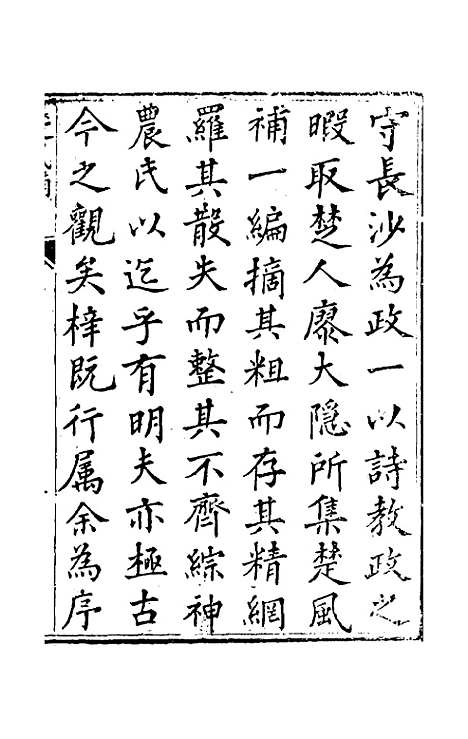 守長沙為政一以詩教政之
暇取楚人廖大隱所集楚風
補一編摘其粗而存其精網
羅其散失而整其不齊綜神
農氏以迄乎有明夫亦極古
今之觀矣梓既行属余為序